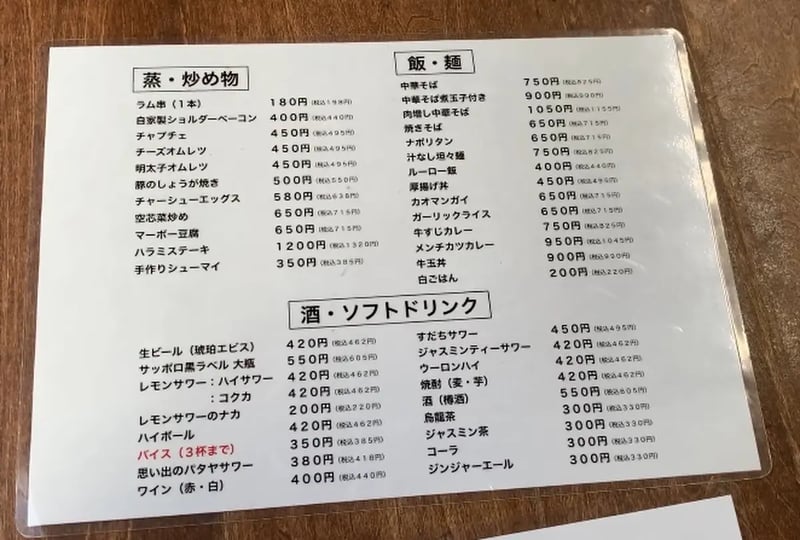 蒸・炒め物
ラム串（１本） １８０円（税込１９８円）
自家製ショルダーベーコン ４００円（税込４４０円）
チャプチェ ４５０円（税込４９５円）
チーズオムレツ ４５０円（税込４９５円）
明太子オムレツ ４５０円（税込４９５円）
豚のしょうが焼き ５００円（税込５５０円）
チャーシューエッグス ５８０円（税込６３８円）
空芯菜炒め ６５０円（税込７１５円）
マーボー豆腐 ６５０円（税込７１５円）
ハラミステーキ １２００円（税込１３２０円）
手作りシューマイ ３５０円（税込３８５円）
飯・麺
中華そば ７５０円（税込８２５円）
中華そば煮玉子付き ９００円（税込９９０円）
肉増し中華そば １０５０円（税込１１５５円）
焼きそば ６５０円（税込７１５円）
ナポリタン ６５０円（税込７１５円）
汁なし坦々麺 ７５０円（税込８２５円）
ルーロー飯 ４００円（税込４４０円）
厚揚げ丼 ４５０円（税込４９５円）
カオマンガイ ６５０円（税込７１５円）
ガーリックライス ６５０円（税込７１５円）
牛すじカレー ７５０円（税込８２５円）
メンチカツカレー ９５０円（税込１０４５円）
牛玉丼 ９００円（税込９９０円）
白ごはん ２００円（税込２２０円）
酒・ソフトドリンク
生ビール（琥珀エビス） ４２０円（税込４６２円）
サッポロ黒ラベル 大瓶 ５５０円（税込６０５円）
レモンサワー：ハイサワー ４２０円（税込４６２円）
：コクカ ４２０円（税込４６２円）
レモンサワーのナカ ２００円（税込２２０円）
ハイボール ４２０円（税込４６２円）
バイス（３杯まで） ３５０円（税込３８５円）
思い出のパタヤサワー ３８０円（税込４１８円）
ワイン（赤・白） ４００円（税込４４０円）
すだちサワー ４５０円（税込４９５円）
ジャスミンティーサワー ４２０円（税込４６２円）
ウーロンハイ ４２０円（税込４６２円）
焼酎（麦・芋） ４２０円（税込４６２円）
酒（樽酒） ５５０円（税込６０５円）
烏龍茶 ３００円（税込３３０円）
ジャスミン茶 ３００円（税込３３０円）
コーラ ３００円（税込３３０円）
ジンジャーエール ３００円（税込３３０円）